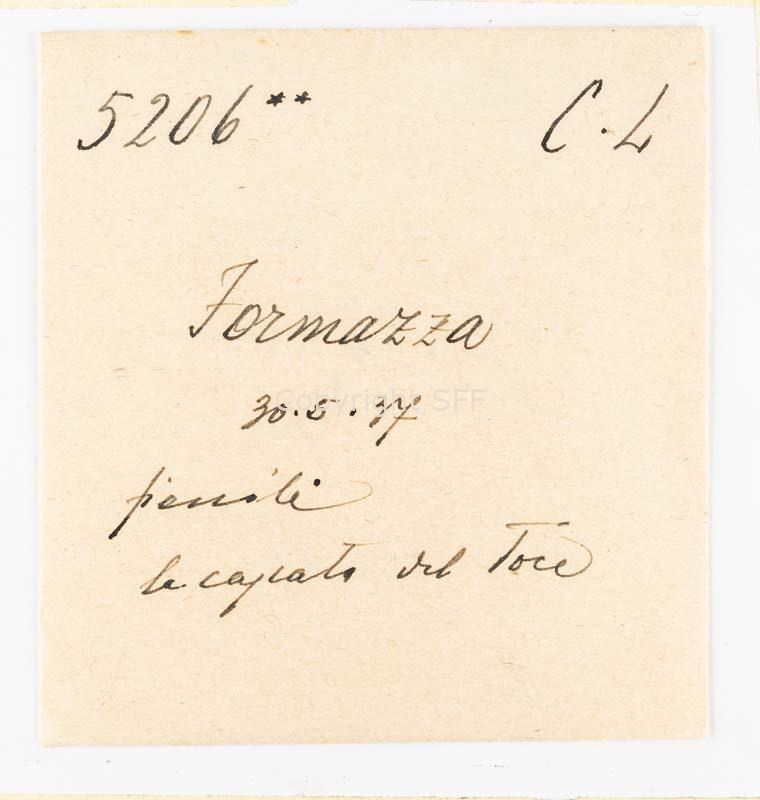 5206** C.L
Formazza
Copyright SFF
30.5.37
fienili
la cascata del Toce